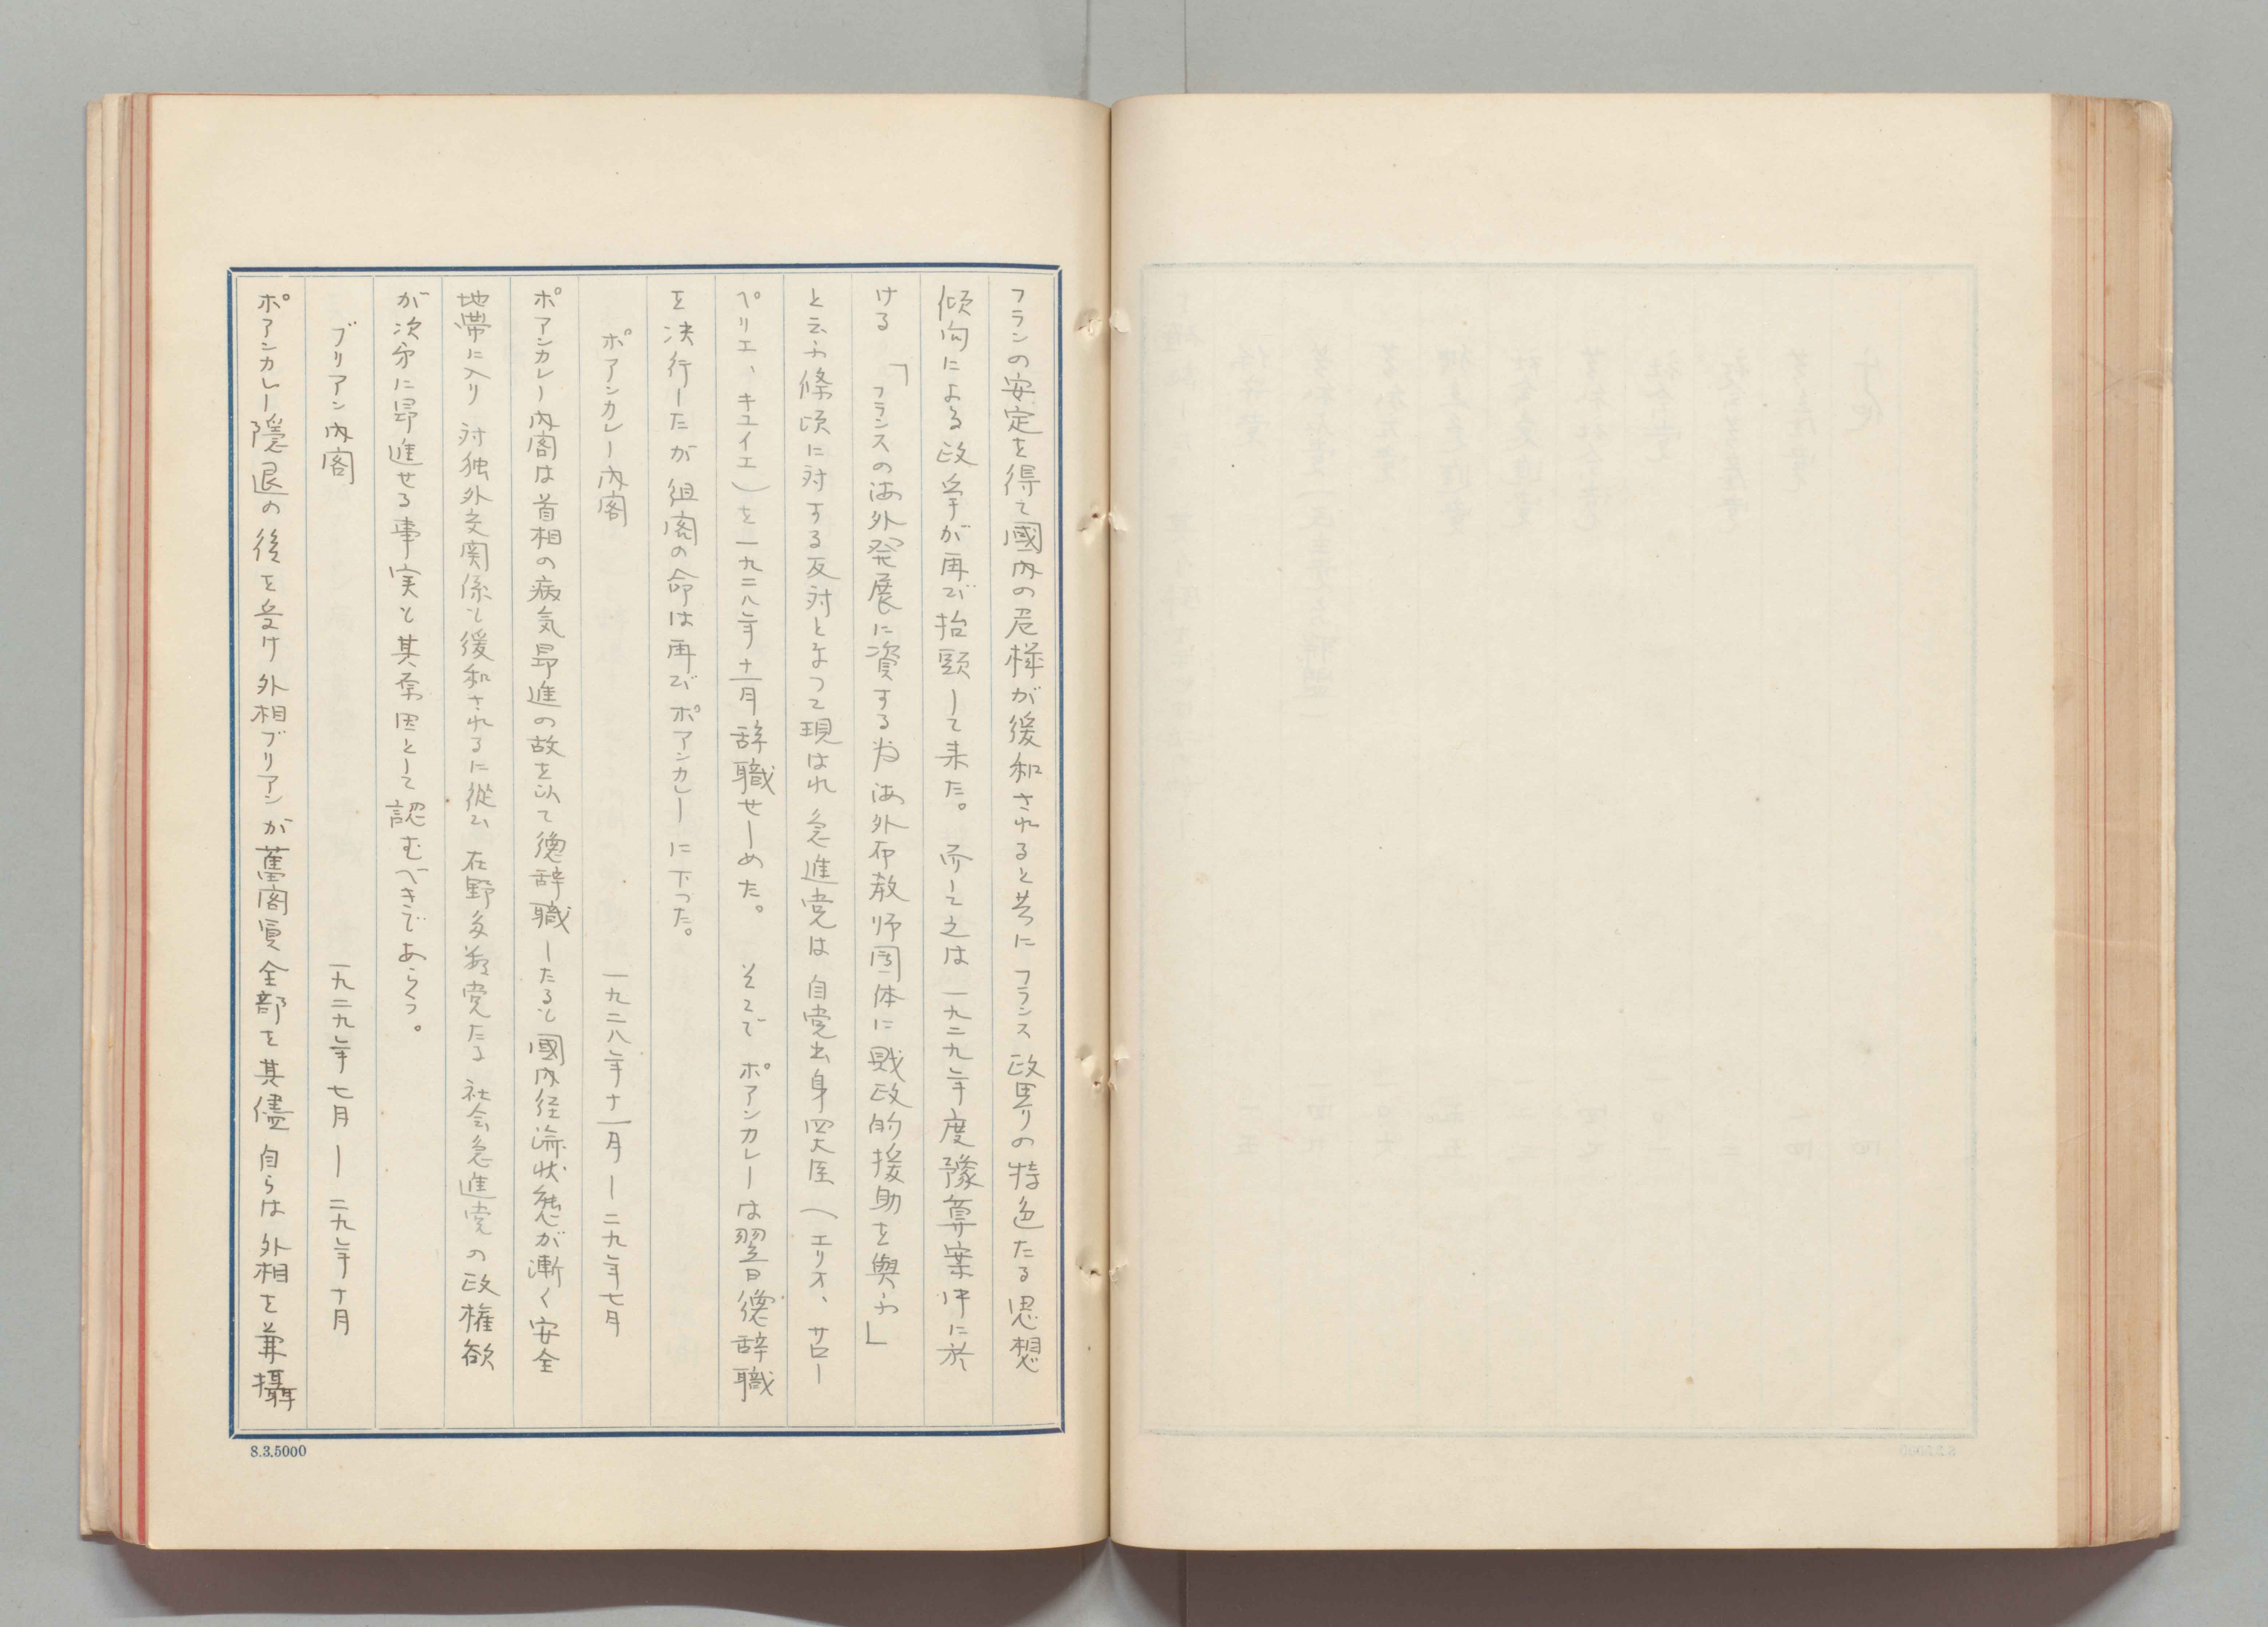 フランの安定を得て國内の危様が緩和されると共に フランス政界の特色たる思想
傾向による政争が再び抬頭して来た。而して之は一九二九年度豫算案中に於
ける 「フランスの海外発展に資する為 海外布教師団体に財政的援助を與ふ」
と云ふ條項に対する反対となつて現はれ 急進党は 自党出身四大臣(エリオ、サロー
ペリエ、キユイエ)を一九二八年十一月辞職せしめた。 そこで ポアンカレーは翌日總辞職
を決行したが 組閣の命は再びポアンカレーに下つた。
ポアンカレー内閣 一九二八年十一月ー二九年七月
ポアンカレー内閣は首相の病気昂進の故を以て總辞職したるも 國内経済状態が漸く安全
地帯に入り 対独外交関係も緩和されるに從ひ 在野多数党たる 社会急進党の政権欲
が次第に昂進せる事実も其原因として認むべきであらう。
ブリアン内閣 一九二九年七月ー二九年十月
ポアンカレー隱退の後を受け 外相ブリアンが舊閣員全部を其儘 自らは外相を兼攝
8.3.5000